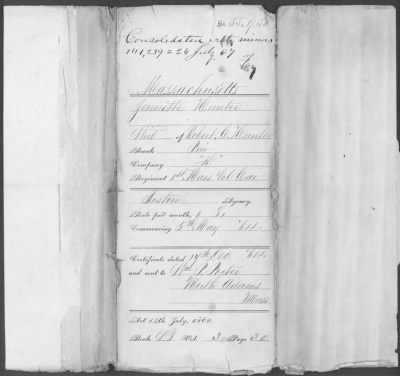 Consolidated with minors
141,239 = 26 July 67
Massachusetts
Jennette Hunter
Wid of Robert C. Hunter
Rank Priv
Company "H"
Regiment 1st Mass Vol Cav
Boston Agency
Rate per month, $ 8.
Commencing 5th May '64.
Certificate dated 17th Dec '64.
and sent to Wm P. Porter
North Adams
Mass.
Act 14th July, 1862.
Book Vol. 3 Page